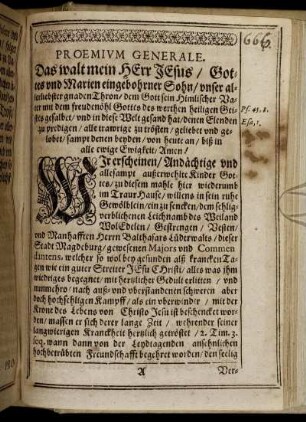 666
PROEMIVM GENERALE.
Das walt mein HErr JEsus / Got-
tes vnd Marien eingebohrner Sohn / vnser al-
lerliebster gnadenThron / dem Gott sein Himlischer Va-
ter mit dem freudenöhl Gottes des werthen heiligen Gei-
stes gesalbet / vnd in diese Welt gesand hat / denen Elenden
zu predigen / alle trawrige zu trösten / geliebet vnd ge-
lobet / sampt denen beyden / von heute an / biß in
alle ewige Ewigkeit / Amen /
Wir erscheinen / Andächtige vnd
allesampt außerwehlte Kinder Got-
tes / zu diesem mahle hier wiederumb
im TraurHause / willens in sein ruhe
Gewölblein / ein zu sencken / den sehlig-
verblichenen Leichnamb des Weiland
WolEdelen / Gestrengen / Vesten /
vnd Manhafften Herrn Balthasars Lüderwalts / dieser
Stadt Magdeburg / gewesenen Majors vnd Commen-
dantens. welcher so wol bey gesunden alß krancken Ta-
gen wie ein guter Streiter JEsu Christi / alles was ihm
wiedriges begegnet / mit herzlicher Gedult erlitten / vnd
nunmehro / nach auß- vnd vberstandenen schweren aber
doch hochseligen Kampff / als ein vberwinder / mit der
Krone des Lebens von Christo Jesu ist beschencket wor-
den / massen er sich derer lange Zeit / wehrender seiner
langwierigen Kranckheit herzlich getröstet / 2. Tim. 3.
seq. wann dann von der Leydtragenden ansehnlichen
hochbetrübten Freundschafft begehret worden / den seelig
A
Ver-
Ps. 45. 8.
Esa.